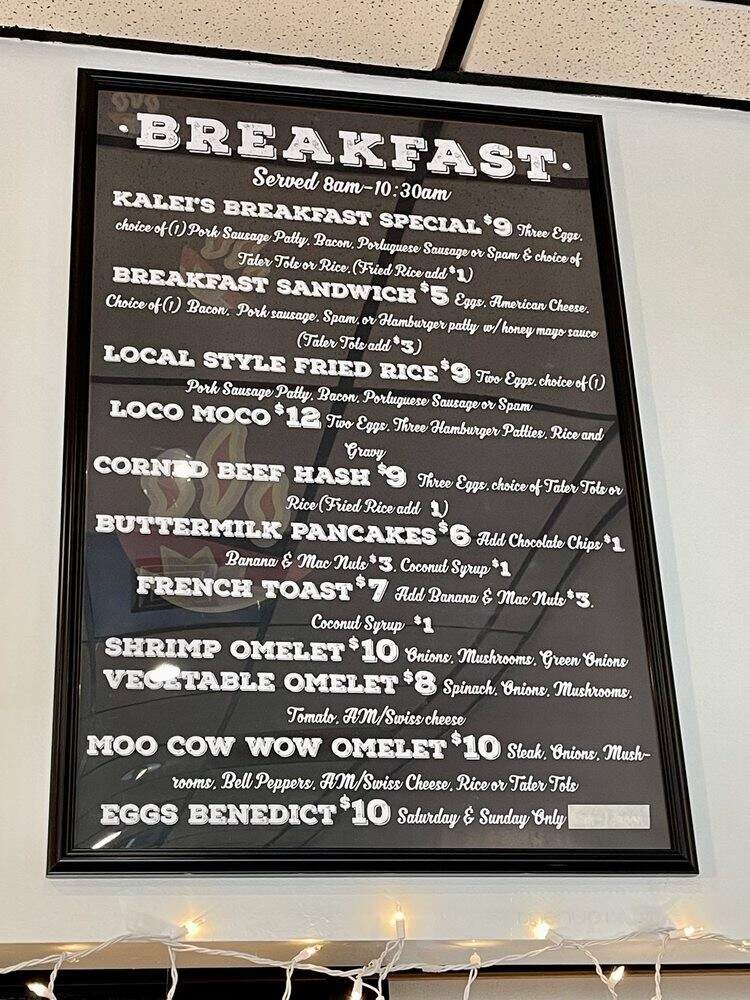 ·BREAKFAST·
Served 8am-10:30am
KALEI'S BREAKFAST SPECIAL $9 Three Eggs,
choice of (1) Pork Sausage Patty, Bacon, Portuguese Sausage or Spam & choice of
Tater Tots or Rice, (Fried Rice add $1)
BREAKFAST SANDWICH $5 Eggs, American Cheese,
Choice of (1) Bacon, Pork sausage, Spam, or Hamburger patty w/honey mayo sauce
(Tater Tots add $3)
LOCAL STYLE FRIED RICE $9 Two Eggs, choice of (1)
Pork Sausage Patty, Bacon, Portuguese Sausage or Spam
LOCO MOCO $12 Two Eggs, Three Hamburger Patties, Rice and
Gravy
CORNED BEEF HASH $9 Three Eggs, choice of Tater Tots or
Rice (Fried Rice add 1)
BUTTERMILK PANCAKES $6 Add Chocolate Chips $1
Banana & Mac Nuts $3, Coconut Syrup $1
FRENCH TOAST $7 Add Banana & Mac Nuts $3,
Coconut Syrup $1
SHRIMP OMELET $10 Onions, Mushrooms, Green Onions
VEGETABLE OMELET $8 Spinach, Onions, Mushrooms,
Tomato, AM/Swiss cheese
MOO COW WOW OMELET $10 Steak, Onions, Mush-
rooms, Bell Peppers, AM/Swiss Cheese, Rice or Tater Tots
EGGS BENEDICT $10 Saturday & Sunday Only